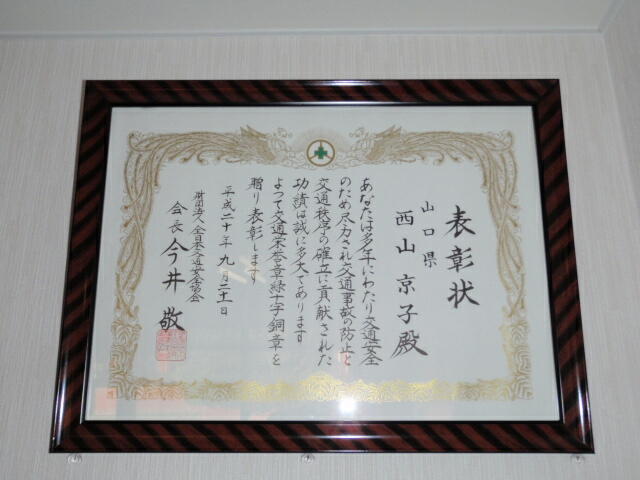 表彰状
山口県
西山京子殿
あなたは多年にわたり交通安全
のため尽力され交通事故の防止と
交通秩序の確立に貢献された
功績は誠に多大であります
よつて交通栄誉章緑十字銅章を
贈り表彰します
平成二十年九月二十日
財団法人全日本交通安全協会
会長今井敬